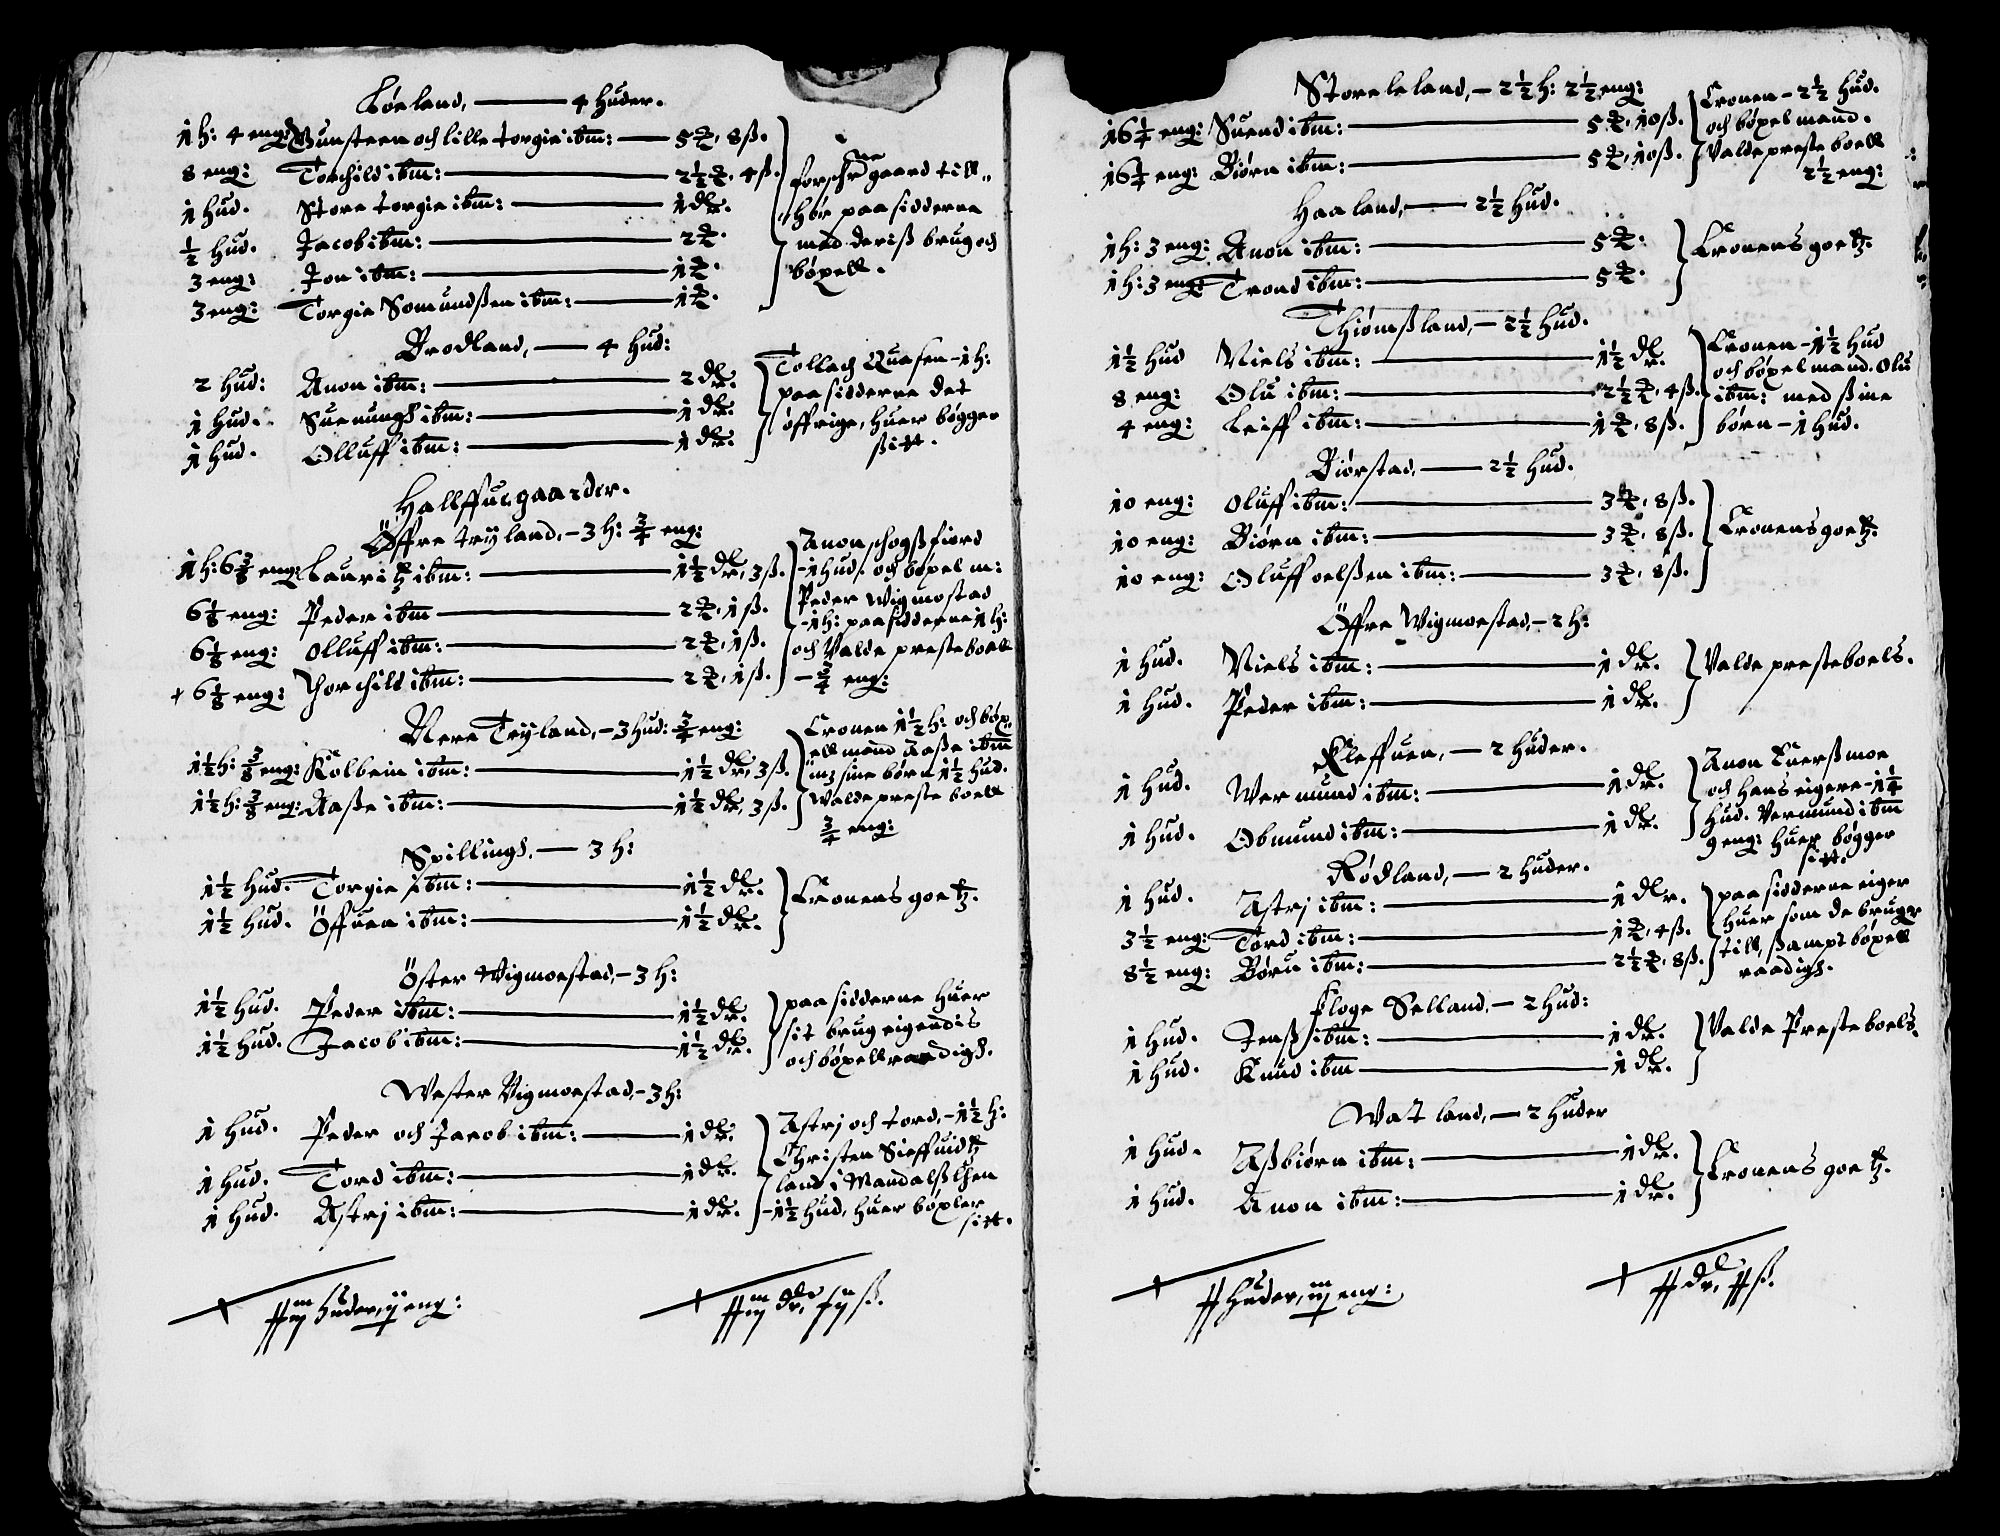 Løeland, — 4 huder.
1 h: 4 eng: Gunsteen och lille torgie ibm: — 5 ₰, 8 ß.
8 eng: Torchild ibm: — 2½ ₰, 4 ß.
1 hud. Store torgie ibm: — 1 dlr.
½ hud. Jacob ibm: — 2 ₰.
3 eng: Jon ibm: — 1 ₰.
3 eng: Torgie Somundßen ibm: — 1 ₰.
forschr<sup>ne</sup> gaard till„
hør paasidderne
med deriß brug och
bøxell.
Brodland, — 4 hud:
2 hud: Anon ibm: — 2 dlr.
1 hud. Suenungh ibm: — 1 dlr.
1 hud. Olluff ibm: — 1 dlr.
Tollach Quasen - 1 h:
paasidderne det
øffrige, huer bøgger
sitt.
Hallffue gaarder.
Öffre trÿland, - 3 h: ¾ eng:
1 h: 6⅜ eng: Lauritz ibm: — 1½ dlr, 3 ß.
6⅛ eng: Peder ibm — 2 ₰, 1 ß.
6⅛ eng: Olluff ibm: — 2 ₰, 1 ß.
6⅛ eng: Thorchild ibm: — 2 ₰, 1 ß.
Anon schogßfiord
- 1 hud. och bøxel m:
Peder Wigmostad
- 1 h: paasidderne 1 h:
och Valde presteboell
- ¾ eng:
Nere Trÿland, - 3 hud: ¾ eng:
1½ h: ⅜ eng: Kolbein ibm: — 1½ dlr, 3 ß.
1½ h: ⅜ eng: Aaße ibm: — 1½ dlr, 3 ß.
Cronen 1½ h: och bøx,
ell mand Aaße ibm
mz sine børn 1½ hud.
Walde preste boell
¾ eng:
Spillingh, — 3 h:
1½ hud. Torgie ibm: — 1½ dlr.
1½ hud. Öffuen ibm: — 1½ dlr.
Cronens goetz.
Öster Wigmoestad, - 3 h:
1½ hud. Peder ibm: — 1½ dlr.
1½ hud. Jacob ibm: — 1½ dlr.
paasidderne huer
sit brug eigendis
och bøxell raadigh.
Wester Vigmoestad, - 3 h:
1 hud. Peder och Jacob ibm: — 1 dlr.
1 hud. Tord ibm: — 1 dlr.
1 hud. Astrj ibm: — 1 dlr.
Astrj och tord, - 1½ h:
Christen Sieffuidtz
land i Mandalß Lhen
- 1½ hud, huer bøxler
sitt.
huder, ij eng:
dlr, ß.
Storeleland, - 2½ h: 2½ eng:
16¼ eng: Suend ibm: — 5 ₰, 10 ß.
16¼ eng: Biørn ibm: — 5 ₰, 10 ß.
Cronen - 2½ hud.
och bøxel mand.
Valde preste boell
2½ eng:
Haaland, — 2½ hud.
1 h: 3 eng: Anon ibm: — 5 ₰:
1 h: 3 eng: Trond ibm: — 5 ₰.
Cronens goetz.
Thiømßland, - 2½ hud.
1½ hud Niels ibm: — 1½ dlr.
8 eng: Olu ibm: — 2½ ₰, 4 ß.
4 eng: Leiff ibm: — 1 ₰, 8 ß.
Cronen - 1½ hud
och bøxel mand. Olu
ibm: med sine
børn - 1 hud.
Biørstad, — 2½ hud.
10 eng: Oluff ibm: — 3 ₰, 8 ß.
10 eng: Biørn ibm: — 3 ₰, 8 ß.
10 eng: Oluff oelßen ibm: — 3 ₰, 8 ß.
Cronens goetz.
Öffre Wigmoestad, - 2 h:
1 hud. Niels ibm: — 1 dlr.
1 hud. Peder ibm: — 1 dlr.
Valde presteboels.
Kleffuen, — 2 huder.
1 hud. Wermund ibm: — 1 dlr.
1 hud. Obmund ibm: — 1 dlr.
Anon Tuerßmoe
och hans eigere - 1¼
hud. Vermund ibm
9 eng: huer bøgger
sitt.
Rødland, — 2 huder.
1 hud. Astrj ibm: — 1 dlr.
3½ eng: Tord ibm: — 1 ₰, 4 ß.
8½ eng: Børu ibm: — 2½ ₰, 8 ß.
paasidderne eiger
huer som de bruger
till, sampt bøxell
raadigh.
Floge Selland, - 2 hud:
1 hud. Jenß ibm: — 1 dlr.
1 hud. Knud ibm — 1 dlr.
Valde Preste boels.
Watland, — 2 huder
1 hud. Aßbiørn ibm: — 1 dlr.
1 hud. Anon ibm: — 1 dlr.
Cronens goetz.
huder, eng:
dlr, ß.